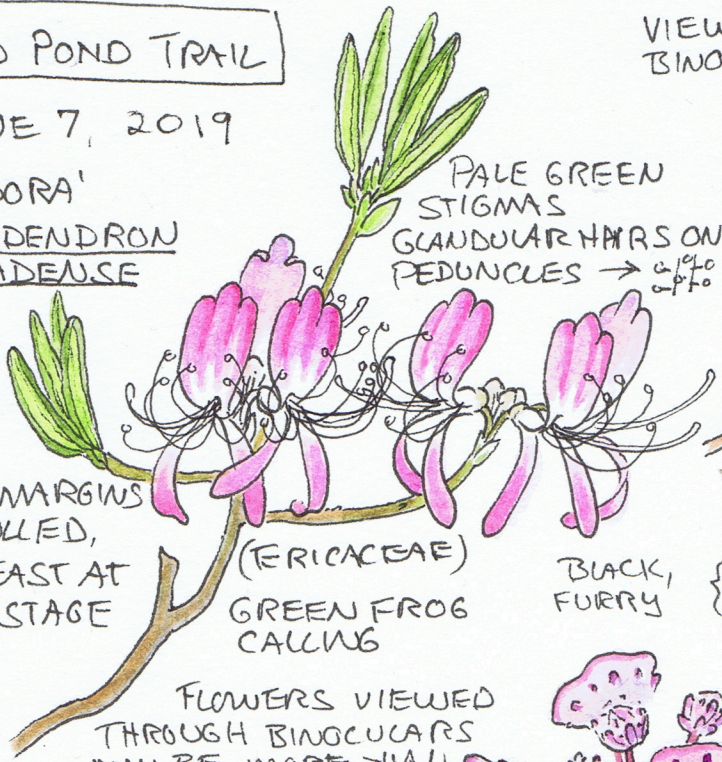 POND TRAIL
VIEW
BINO
E 7, 2019
ORA'
DENDRON
ADENSE
PALE GREEN
STIGMAS
GLANDULAR HAIRS ON
PEDUNCLES →
MARGINS
LLED,
EAST AT
STAGE
(ERICACEAE)
GREEN FROG
CALLING
BLACK,
FURRY
FLOWERS VIEWED
THROUGH BINOCULARS